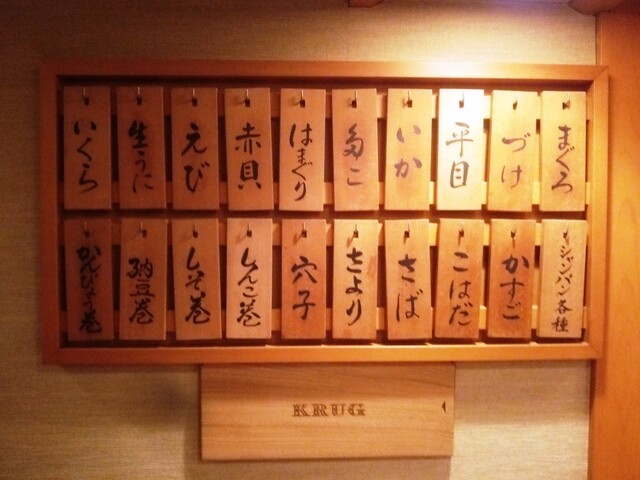 まぐろ
づけ
平目
いか
たこ
はまぐり
赤貝
えび
生うに
いくら
シャンパン各種
かすご
こはだ
さば
さより
穴子
しんこ巻
しそ巻
納豆巻
かんぴょう巻
KRUG